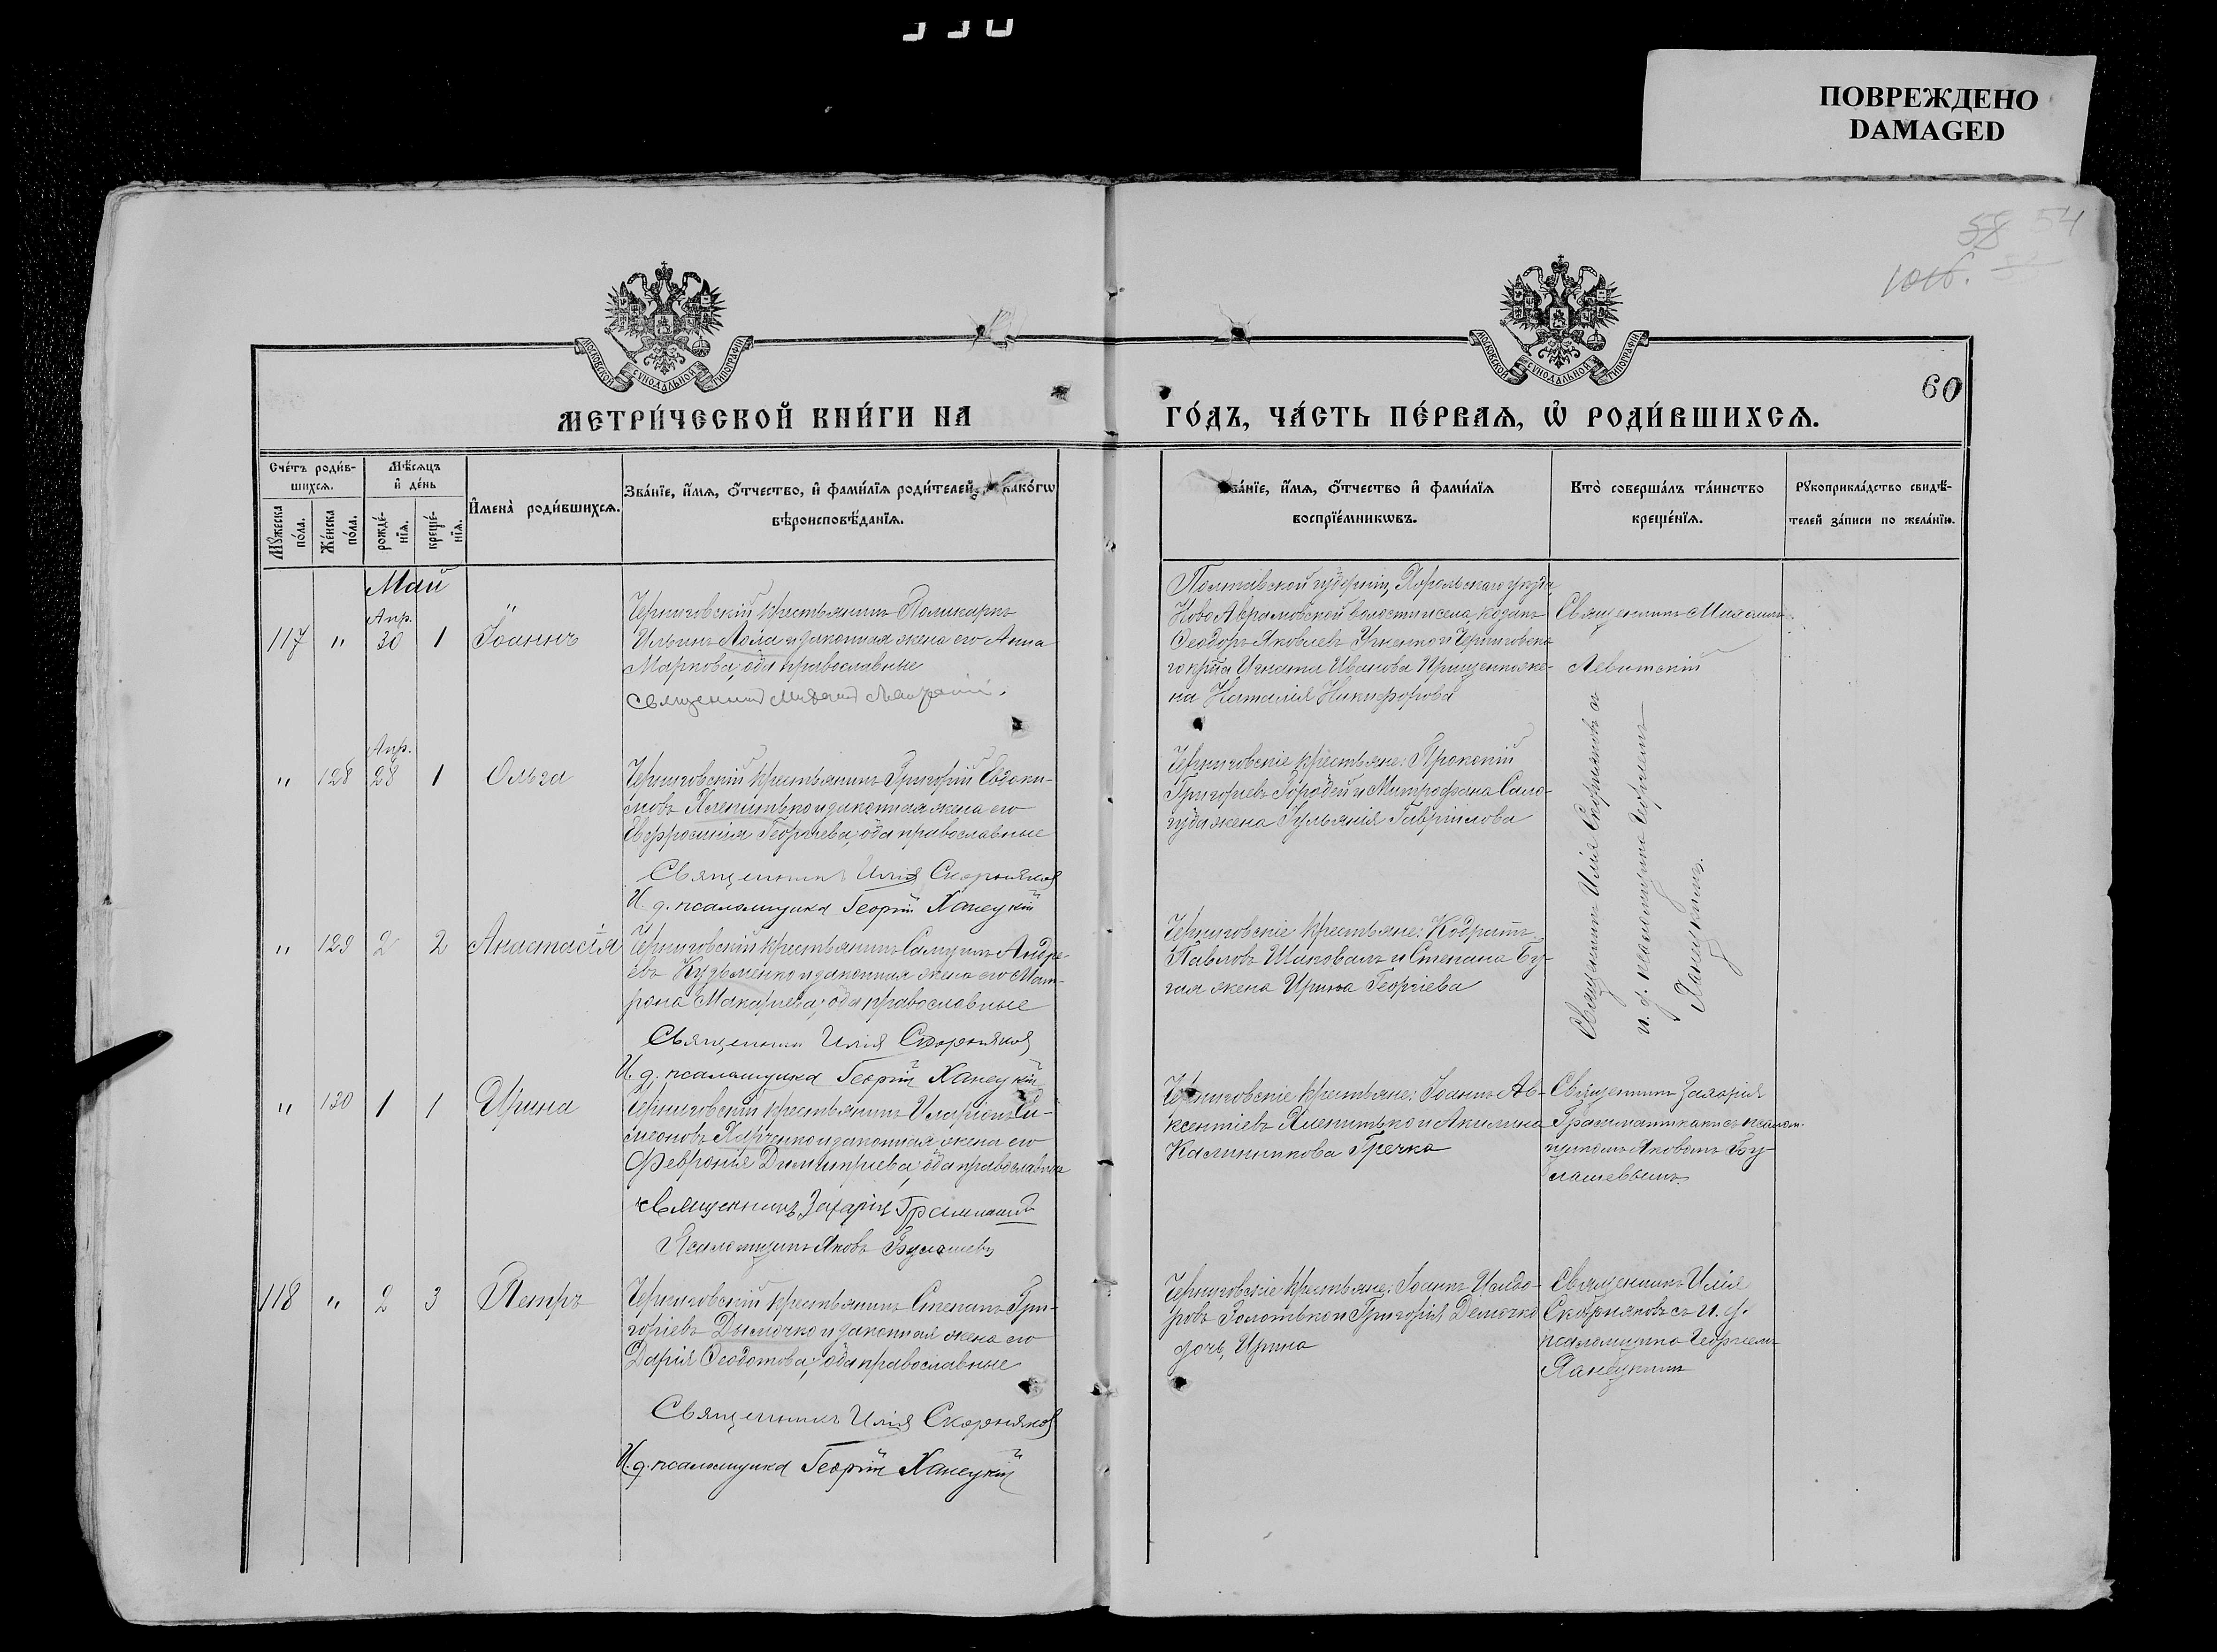 ПОВРЕЖДЕНО
DAMAGED
58 54
60
МОСКОВСКОЙ СУНОДАЛЬНОЙ ТИПОГРАФІИ
МОСКОВСКОЙ СУНОДАЛЬНОЙ ТИПОГРАФІИ
МЕТРИ́ЧЕСКОЙ КНИ́ГИ НА
ГО́ДЪ, ЧА́СТЬ ПЕ́РВАѦ, Ѿ РОДИ́ВШИХСѦ.
Сче́тъ роди́в-
шихсѧ.
Мꙋ́жеска по́ла.
Же́нска по́ла.
Мѣ́сѧцъ
и҆ де́нь
рожде́-
нїѧ.
креще́-
нїѧ.
И҆мена̀ роди́вшихсѧ.
Зва́нїе, и҆́мѧ, ѻ҆́тчество, и҆ фами́лїѧ роди́телей, и҆ како́гѡ
вѣроисповѣ́данїѧ.
Зва́нїе, и҆́мѧ, ѻ҆́тчество и҆ фами́лїѧ
воспрїе́мникѡвъ.
Кто̀ соверша́лъ та́инство
креще́нїѧ.
Рꙋкоприкла́дство свидѣ́-
телей за́писи по жела́нїю.
Май
117 " Апр. 30 1 Іоаннъ
Черниговскій крестьянинъ Поликарпъ
Ильинъ Лола и законная жена его Анна
Маркова, оба православные
Священникъ Михаилъ Левитскій.
Полтавской губерніи, Хорольскаго уѣзда,
Ново Аврамовской волости и села, козакъ
Ѳеодоръ Яковлевъ и Черниговска-
го кр-на Игната Иванова Грищенко же-
на Наталія Никифорова
Священникъ Михаилъ
Левитскій
" 128 Апр. 28 1 Ольга
Черниговскій крестьянинъ Григорій Евдоки-
мовъ Хленитько и законная жена его
Евфросинія Георгіева, оба православные
Священникъ Илія Скорняковъ
И. д. псаломщика Георгій Ханецкій
Черниговскіе крестьяне: Прокопій
Григорьевъ Городей и Митрофана Само-
гуда жена Іульянія Гавріилова
Священникъ Илія Скорняковъ съ
и. д. псаломщика Георгіемъ
Ханецкимъ.
" 129 2 2 Анастасія
Черниговскій крестьянинъ Самуилъ Андре-
евъ Кузьменко и законная жена его Мат-
рона Макарьева, оба православные
Священникъ Илія Скорняковъ
И. д. псаломщика Георгій Ханецкій
Черниговскіе крестьяне: Кодратъ
Павловъ Шаповалъ и Степана Бу-
гая жена Ирина Георгіева
" 130 1 1 Ирина
Черниговскій крестьянинъ Иларіонъ Си-
меоновъ Харченко и законная жена его
Февронія Димитріева, оба православные
Священникъ Захарія Грамматика
Псаломщикъ Яковъ Булашевъ
Черниговскіе крестьяне: Іоаннъ Ав-
ксентіевъ Хленитько и Акилина
Калинникова Гречка
Священникъ Захарія
Грамматика съ псалом-
щикомъ Яковомъ Бу-
лашевымъ
118 " 2 3 Петръ
Черниговскій крестьянинъ Степанъ Гри-
горіевъ Дымочко и законная жена его
Дарія Ѳеодотова, оба православные
Священникъ Илія Скорняковъ
И. д. псаломщика Георгій Ханецкій
Черниговскіе крестьяне: Іоаннъ Исидо-
ровъ Золотько и Григорія Демочко
дочь, Ирина
Священникъ Илія
Скорняковъ съ и. д.
псаломщика Георгіемъ
Ханецкимъ